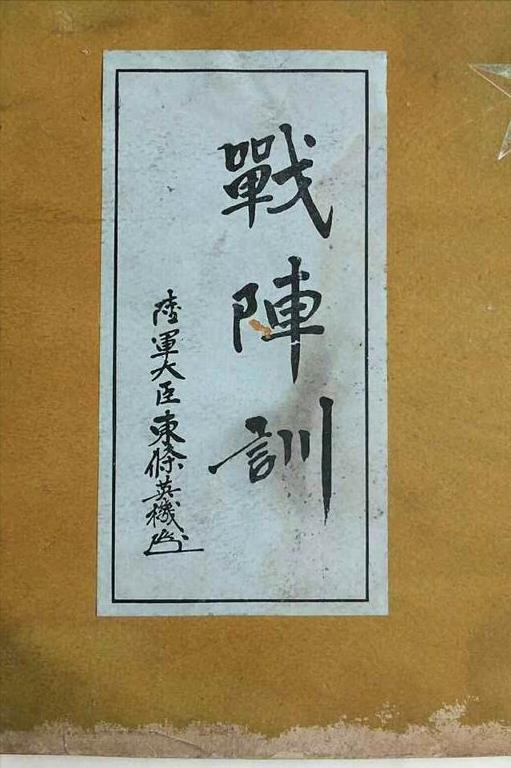 戰陣訓
陸軍大臣東條英機